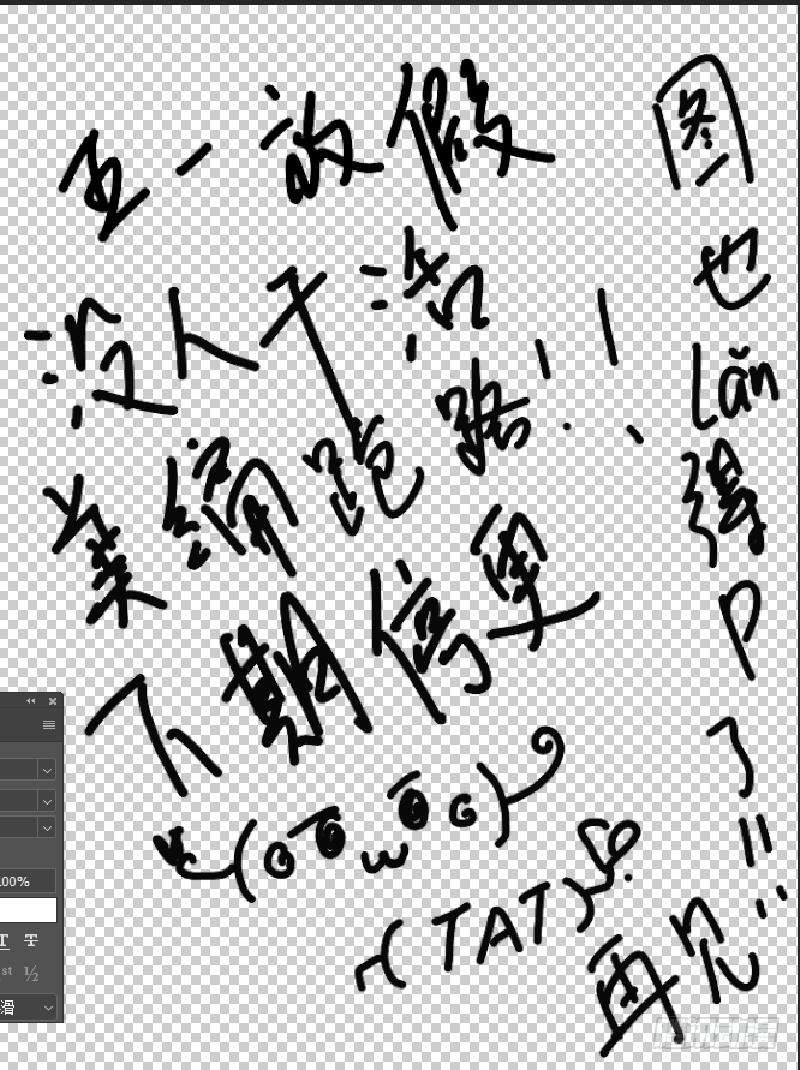 五一放假
没人干活
美编跑路!!
下期停更
(TAT)
图也lǎn得P了=
再见!!
00%
T T
st ½
滑